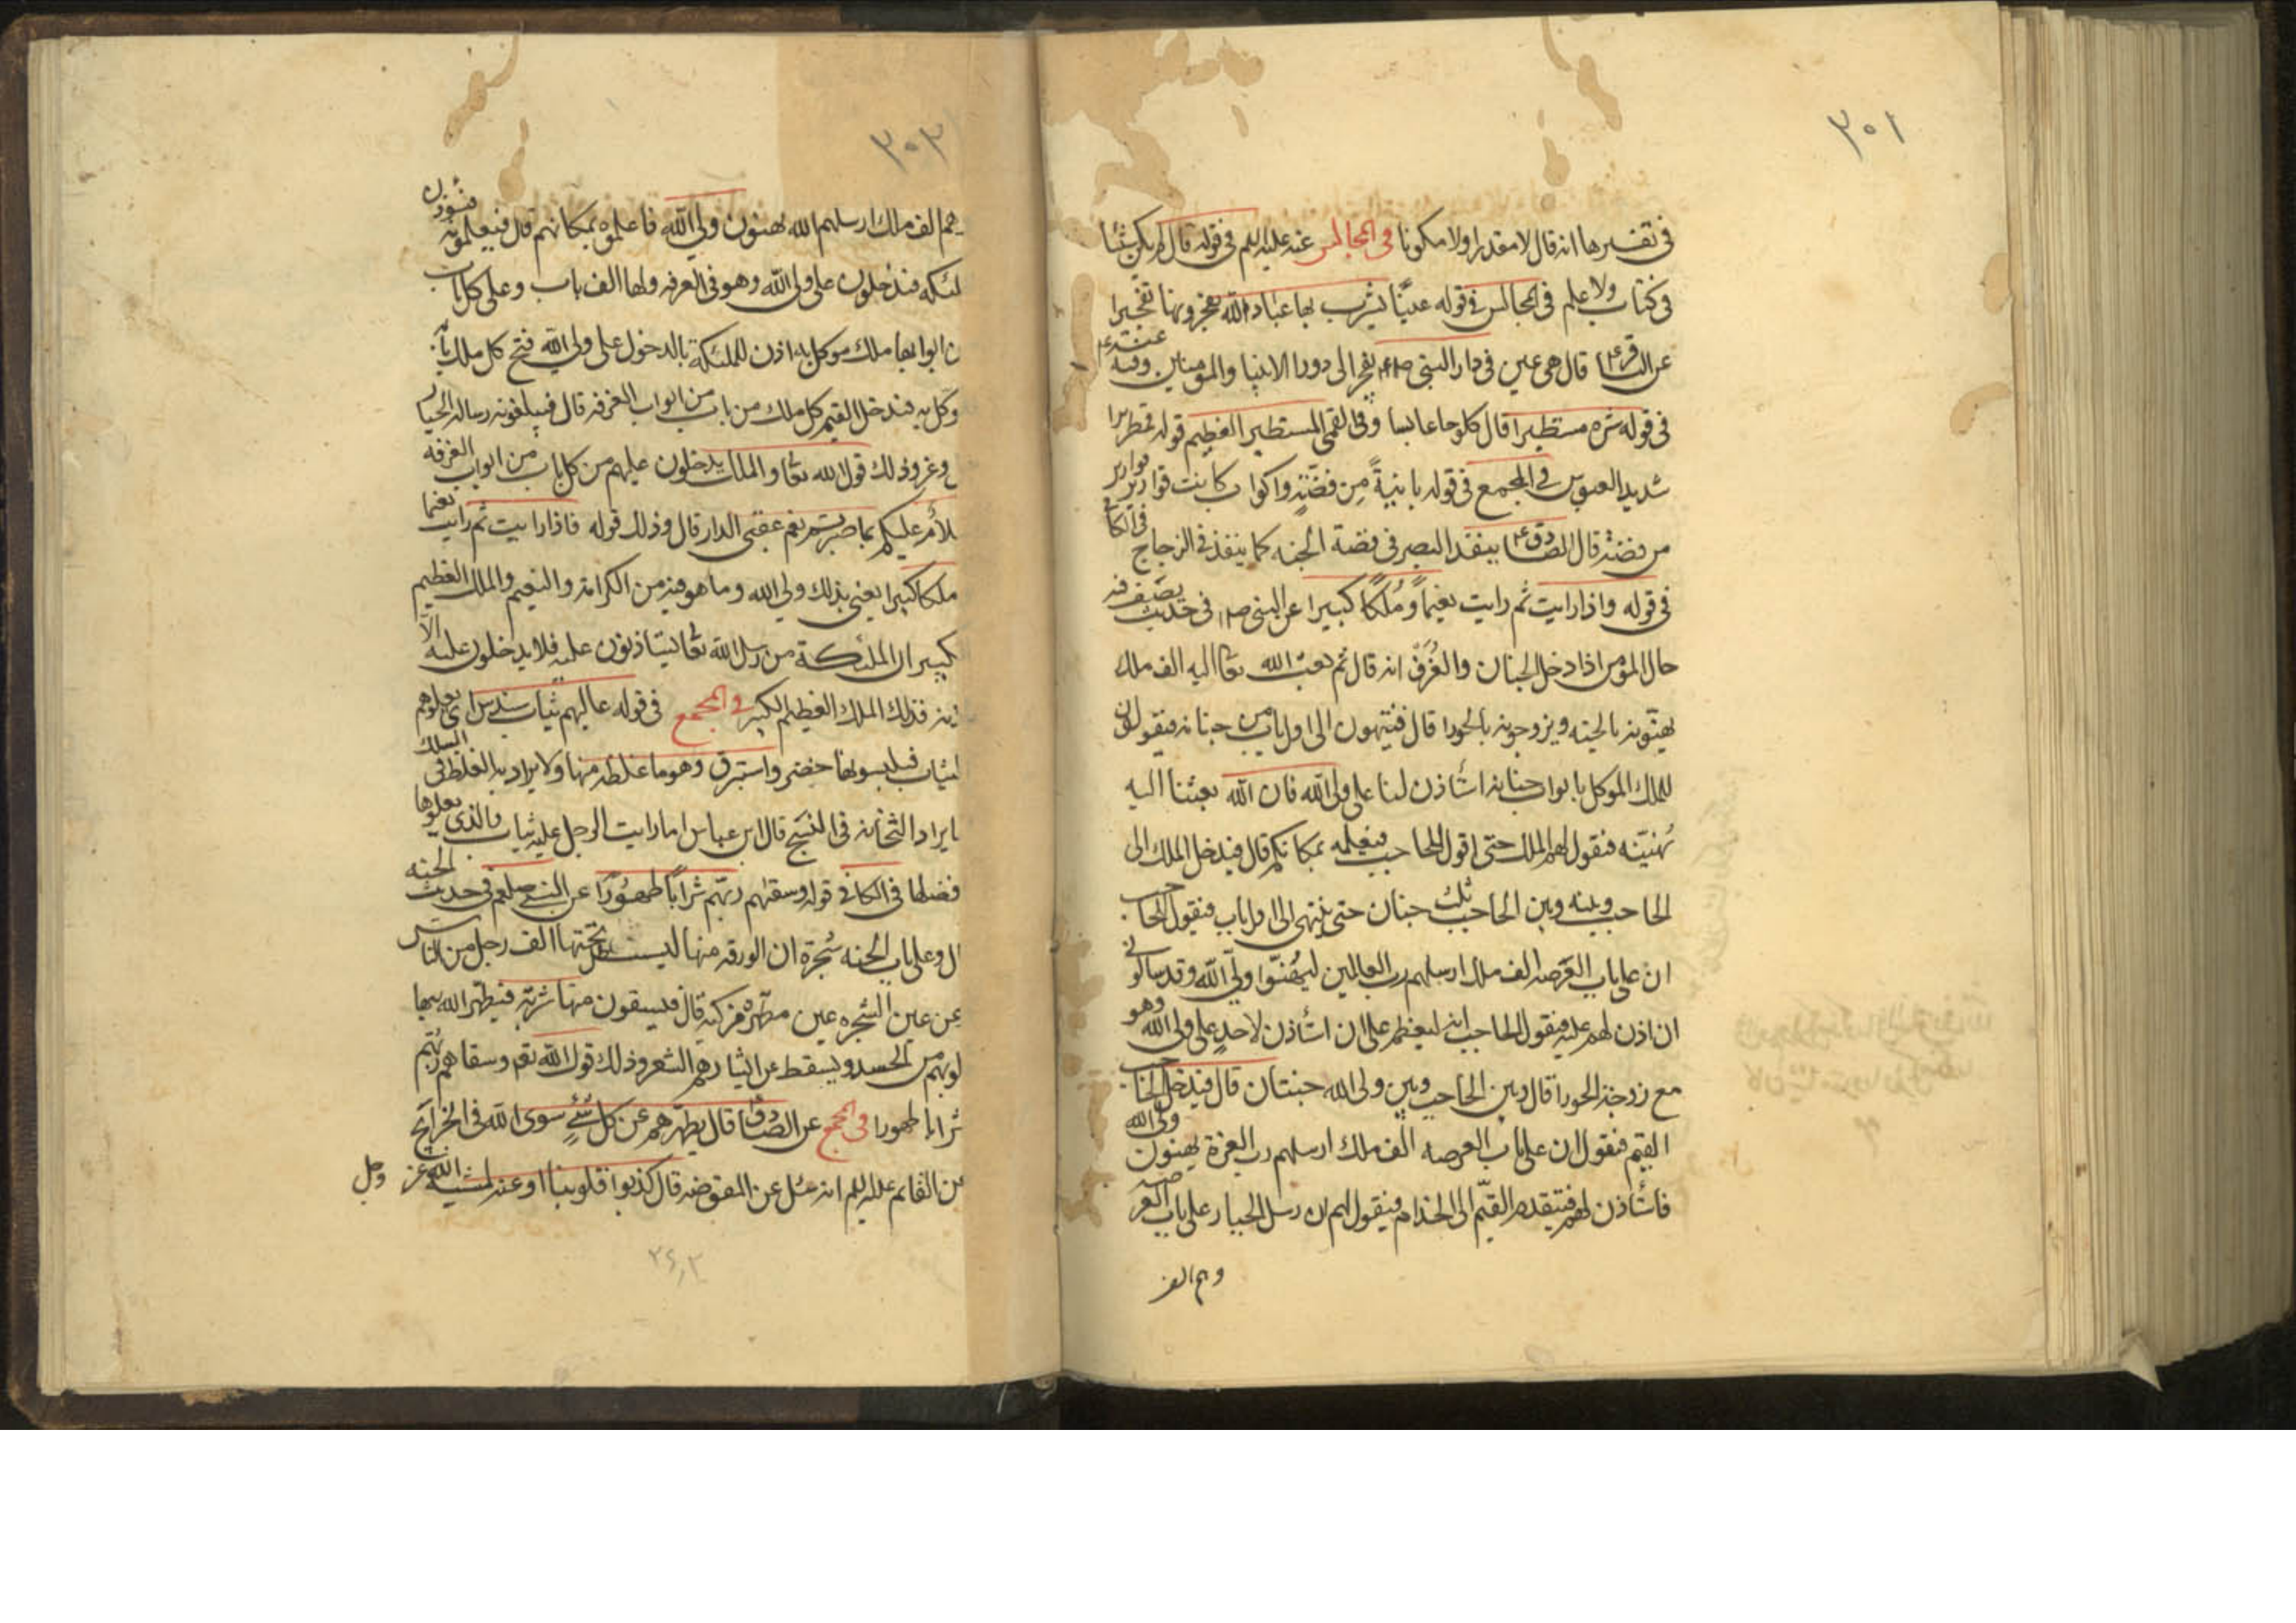 ٣٠١
فى تفسيرها انه قال لا مقدرا ولا مكونا فى المجالس عنه عليه السلم فى قوله قال لم يكن شيئا
فى كتاب ولا علم فى المجالس فى قوله عينًا يشرب بها عباد الله يفجرونها تفجيرا
عن الباقر ع قال هى عين فى دار النبى ص تفجر الى دور الانبيا والمؤمنين وفيه عنه ع
فى قوله شره مستطيرا قال كلوحا عابسا وفى القمى المستطير العظيم قوله قمطريرا
شديد العبوس فى المجمع فى قوله بانيةً مِن فضّةٍ واكواب كانت قوارير قوارير
من فضة قال الصادق ع ينفذ البصر فى فضة الجنه كما ينفذ فى الزجاج فى الكافى
فى قوله واذا رايت ثم رايت نعيماً ومُلكاً كبيرا عن النبى ص فى حديث يصف فيه
حال المؤمن اذا دخل الجنان والغُرَفْ انه قال ثم يبعث الله تعا اليه الف ملك
يهنّونه بالجنه ويزوجونه بالحورا قال فينتهون الى اول باب من جنانه فيقولون
للملك الموكل بابواب جنانه استأذن لنا على ولى الله فان الله بعثنا اليه
نُهنيّنه فيقول لهم الملك حتى اقول للحاجب فيعلمه بمكانكم قال فيدخل الملك الى
الحاجب وبينه وبين الحاجب ثلث جنان حتى ينتهى الى اول باب فيقول للحاجب
ان على باب العرصه الف ملك ارسلهم رب العالمين ليهُنّوا ولىّ الله وقد سالونى
ان اذن لهم عليه فيقول الحاجب انه ليعظم على ان استأذن لاحدٍ على ولى الله وهو
مع زوجته الحورا قال وبين الحاجب وبين ولى الله جنتان قال فيدخل الحاجب
القيم فيقول ان على باب العرصه الف ملك ارسلهم رب العزة يهنون ولى الله
فاستأذن لهم فيتقدم القيّم الى الخدام فيقول لهم ان رسل الجبار على باب العرصه
وهم الف
٣٠٢
هم الف ملك ارسلهم الله يهنون ولى الله فاعلموه بمكانهم قال فيعلمونه فيؤذن
لئكه فيدخلون على ولى الله وهو فى الغرفه ولها الف باب وعلى كل باب
ن ابوابها ملك موكل به اذن للملئكة بالدخول على ولى الله فتح كل ملك بابه
وكل به فيدخل القيم كل ملك من باب من ابواب الغرفه قال فيبلغونه رساله الجبار
وعز وذلك قول الله تعا والملئكة يدخلون عليهم من كل باب من ابواب الغرفه
لام عليكم بما صبرتم فنعم عقبى الدار قال وذلك قوله فاذا رايت ثم رايت نعيما
ملكا كبيرا يعنى بذلك ولى الله وما هو فيه من الكرامة والنعيم والملك العظيم
كبير ان الملئكة من رسل الله تعا يستاذنون عليه فلا يدخلون عليه الّا
ذنه فذلك الملك العظيم الكبير فى المجمع فى قوله عاليهم ثياب سندس اى يعلوهم
لثياب فيلبسونها خضر واستبرق وهو ما غلظ منها ولا يراد به الغلظ فى السلك
ما يراد الثخانه فى النسج قال ابن عباس اما رايت الرجل عليه ثياب والذى يعلوها
فضلها فى الكافى قوله وسقيٰهم ربّهم شراباً طهوراً عن النبى صلعم فى حديث الجنه
ال وعلى باب الجنه شجرة ان الورقه منها ليستظل تحتها الف رجل من الناس
عن عين الشجره عين مطهّره مزكيه قال فيسقون منها شربةً فيطهر الله بها
لوبهم من الحسد ويسقط عن ابشارهم الشعر وذلك قول الله تع وسقاهم ربّهم
شرابا طهورا فى المجمع عن الصادق ع قال يطهرهم عن كل شئ سوى الله فى الخرايج
عن القايم عليه السلم انه سئل عن المفوضه قال كذبوا قلوبنا اوعيه لمشية الله عز وجل